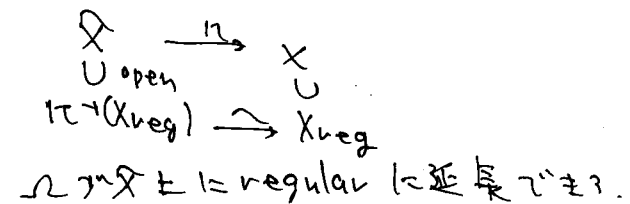 X̃ π→ X
∪ open ∪
π⁻¹(Xreg) ~→ Xreg
Ω が X̃ 上に regular に延長できる.